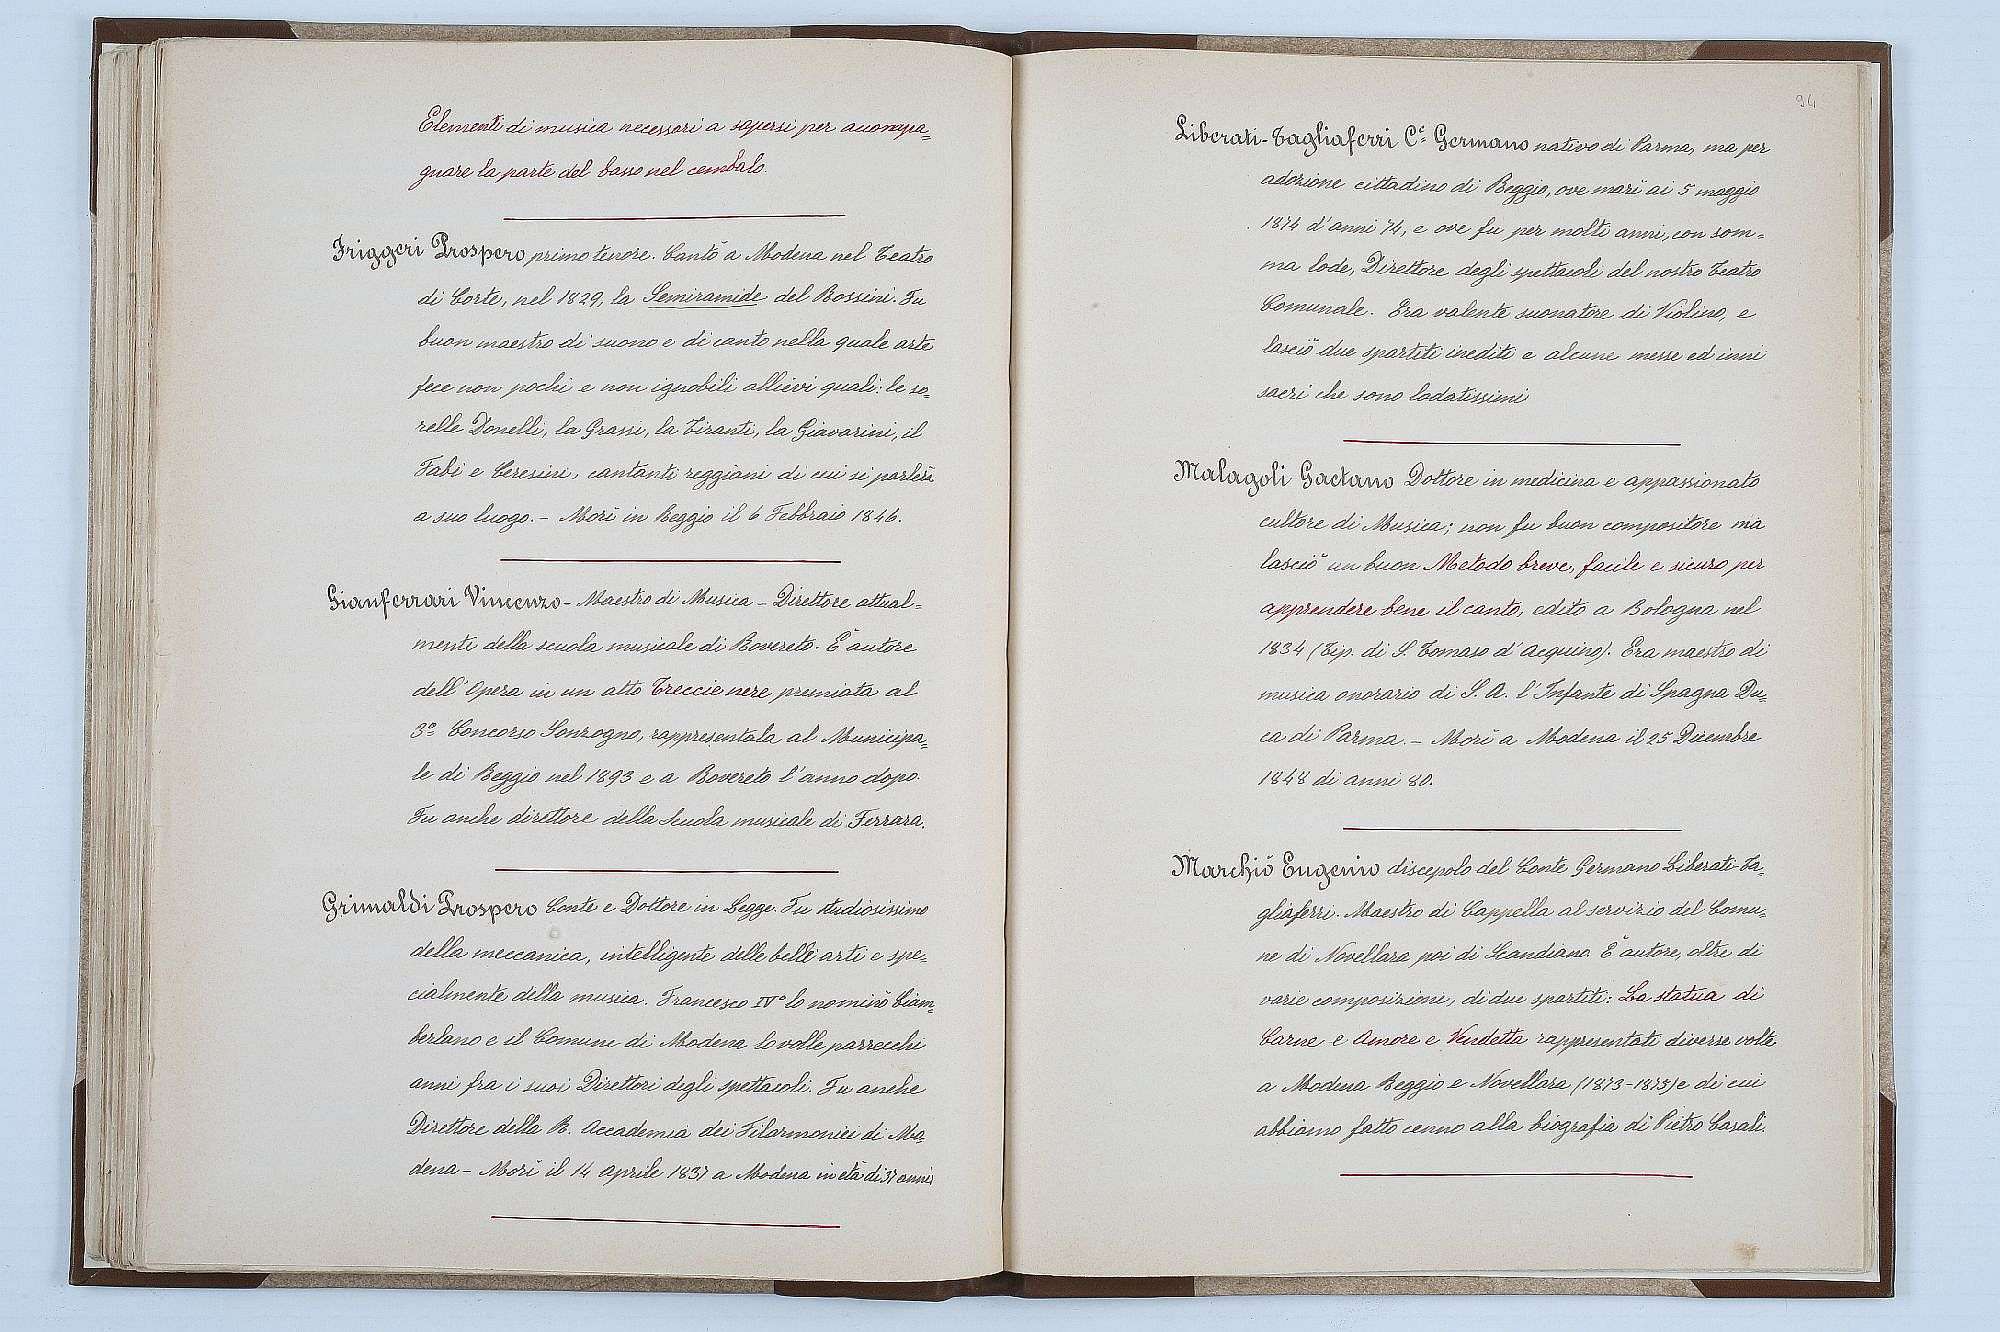 Elementi di musica necessari a sapersi per accompa=
gnare la parte del basso nel cembalo.
Friggeri Prospero primo tenore. Cantò a Modena nel Teatro
di Corte, nel 1829, la Semiramide del Rossini. Fu
buon maestro di suono e di canto nella quale arte
fece non pochi e non ignobili allievi quali: le so=
relle Donelli, la Grassi, la Tiranti, la Giavarini, il
Fabi e Ceresini, cantanti reggiani di cui si parlerà
a suo luogo. - Morì in Reggio il 6 Febbraio 1846.
Gianferrari Vincenzo - Maestro di Musica - Direttore attual=
mente della scuola musicale di Rovereto. È autore
dell'Opera in un atto Treccie nere premiata al
3º Concorso Sonzogno, rappresentata al Municipa=
le di Reggio nel 1893 e a Rovereto l'anno dopo.
Fu anche direttore della Scuola musicale di Ferrara.
Grimaldi Prospero Conte e Dottore in Legge. Fu studiosissimo
della meccanica, intelligente delle belle arti e spe=
cialmente della musica. Francesco IVº lo nominò Ciam=
berlano e il Comune di Modena lo volle parecchi
anni fra i suoi Direttori degli spettacoli. Fu anche
Direttore della R. Accademia dei Filarmonici di Mo=
dena - Morì il 14 Aprile 1837 a Modena in età di 37 anni
94
Liberati-Tagliaferri Cº Germano nativo di Parma, ma per
adozione cittadino di Reggio, ove morì ai 5 maggio
1874 d'anni 74, e ove fu per molti anni, con som=
ma lode, Direttore degli spettacoli del nostro Teatro
Comunale. Era valente suonatore di Violino, e
lasciò due spartiti inediti e alcune messe ed inni
sacri che sono lodatissimi
Malagoli Gaetano Dottore in medicina e appassionato
cultore di Musica; non fu buon compositore ma
lasciò un buon Metodo breve, facile e sicuro per
apprendere bene il canto, edito a Bologna nel
1834 (Tip. di S. Tomaso d'Acquino). Era maestro di
musica onorario di S. A. l'Infante di Spagna Du=
ca di Parma. - Morì a Modena il 25 Dicembre
1848 di anni 80.
Marchiò Eugenio discepolo del Conte Germano Liberati-Ta=
gliaferri. Maestro di Cappella al servizio del Comu=
ne di Novellara poi di Scandiano. È autore, oltre di
varie composizioni, di due spartiti: La statua di
Carne e Amore e Vendetta rappresentati diverse volte
a Modena Reggio e Novellara (1873-1875) e di cui
abbiamo fatto cenno alla biografia di Pietro Casali.